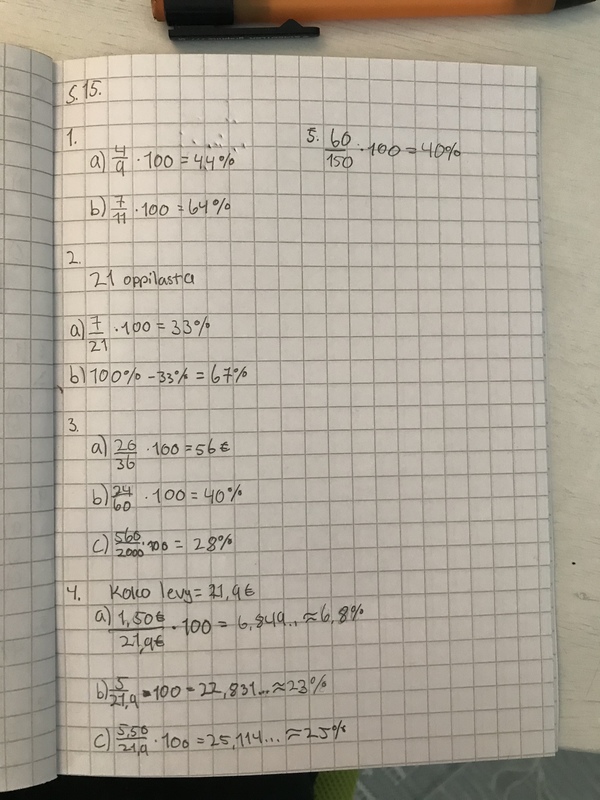 S.15.
1.
a) 4/9 · 100 = 44%
b) 7/11 · 100 = 64%
2.
21 oppilasta
a) 7/21 · 100 = 33%
b) 100% - 33% = 67%
3.
a) 26/36 · 100 = 56€
b) 24/60 · 100 = 40%
c) 560/2000 · 100 = 28%
4. Koko levy = 21,9€
a) 1,50€/21,9€ · 100 = 6,849.. ≈ 6,8%
b) 5/21,9 · 100 = 22,831... ≈ 23%
c) 5,50/21,9 · 100 = 25,114... ≈ 25%
5. 60/150 · 100 = 40%